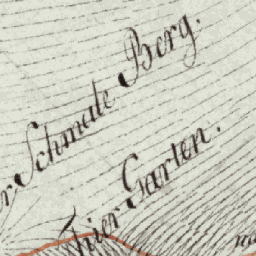 r Schmale Berg.
Thier Garten.